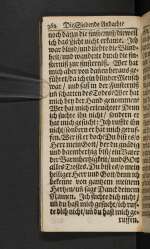 362 Die Siebende Andacht/
noch darzu die finsternis/dieweil
ich das liecht nicht erkante. Ich
war blind/und liebte die Blind-
heit/und wandelte durch die fin-
sternis zur finsternis. Wer hat
mich aber von dannen herausge-
führet/da ich blinder Mensch
war/ und saß in der finsternis
im schatten des Todes? Wer hat
mich bey der Hand genommen?
Wer hat mich erleuchtet? Denn
ich suchte ihn nicht/ sondern er
hat mich gesucht: Ich ruffte ihm
nicht/sondern er hat mich geruf-
fen. Wer ist er doch? Du bist es o
Herr mein Gott/ der du gnädig
und barmhertzig bist/ ein Vater
der Barmhertzigkeit/ und Gott
alles Trostes. Du bist es/ o mein
heiliger Herr und Gott/ denn ich
bekenne von gantzem meinem
Hertzen/und sage Danck deinem
Namen. Ich suchte dich nicht/
und du hast mich gesucht/ich ruf-
te dich nicht/und du hast mich ge-
ruffen.